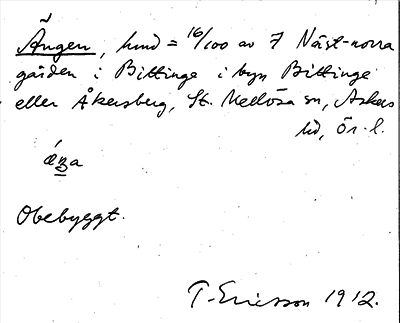 Ängen, hmd = 16/100 av 7 Näst-norra
gården i Bittinge i byn Bittinge
eller Åkersberg, St. Mellösa sn, Askers
hd, Ör. l.
áŋa
Obebyggt.
T. Ericsson 1912.